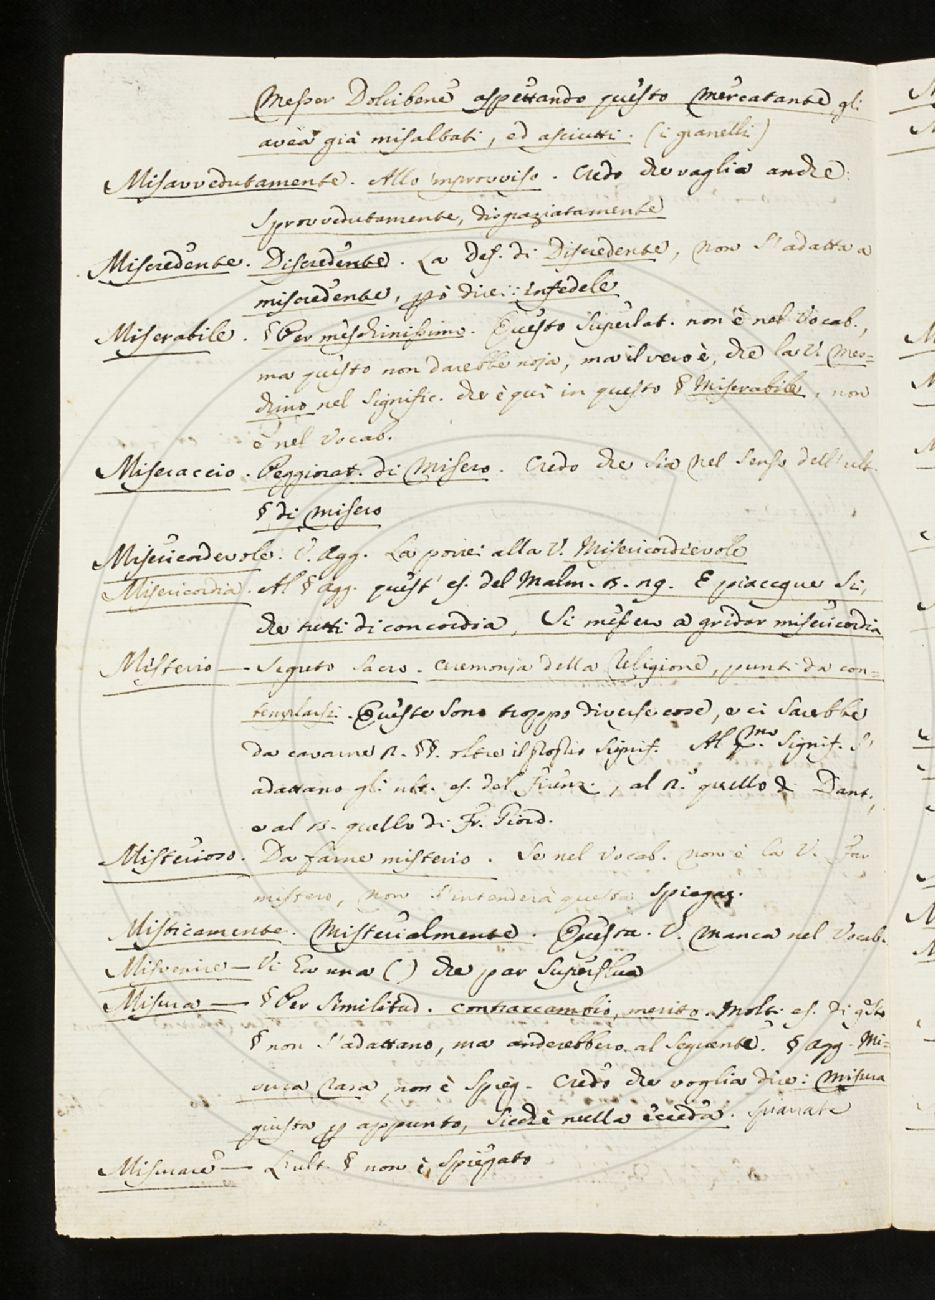 Messer Dolcibene aspettando questo mercatante gli
avea già misaltati, ed asciutti. (i granelli)
Misavvedutamente. Allo 'mprovviso. Credo che vaglia anche:
sprovvedutamente, disgraziatamente
Miscredente. Discredente. La def. di Discredente, non s'adatta a
miscredente, p̱ò dice: Infedele
Miserabile. § Per meschinissimo. Questo superlat. non è nel Vocab.,
ma questo non darebbe noja, ma il vero è, che la V. Mes=
chino nel signific. che è quì in questo § Miserabile, non
è nel Vocab.
Miseraccio. Peggiorat. di Misero. Credo che sia nel senso dell'ult.
§ di misero
Misericordevole. V. Agg. La porrei alla V. Misericordievole
Misericordia. Al § agg. quest' es. del Malm. E piacque sì,
che tutti di concordia, Si messero a gridar misericordia
Misterio — Segreto sacro. ceremonja della Religione, punti da con=
templarsi. Queste sono troppo diverse cose, e ci sarebbe
da cavarne §§. oltre il signif. Al p.mo signif. s'
adattano gli ult. es. del , al 2. quello di Dant.,
e al 3. quello di Fr. Giord.
Misterioso. Da farne misterio. Se nel Vocab. non è la V. Far
mistero, non s'intenderà questa spiegaz.
Misticamente. Misterialmente. Questa V. manca nel Vocab.
Misvenire — Vi ha una () che par superflua
Misura — § Per Similitud. contraccambio, merito. Molti es. di q̱sto
§ non s'adattano, ma anderebbero al seguente. § Agg. Mi=
sura rasa, non è spieg. Credo che voglia dire: Misura
giusta p̱ appunto, sicchè nulla ecceda. svariate
Misurare — L'ult. § non è spiegato